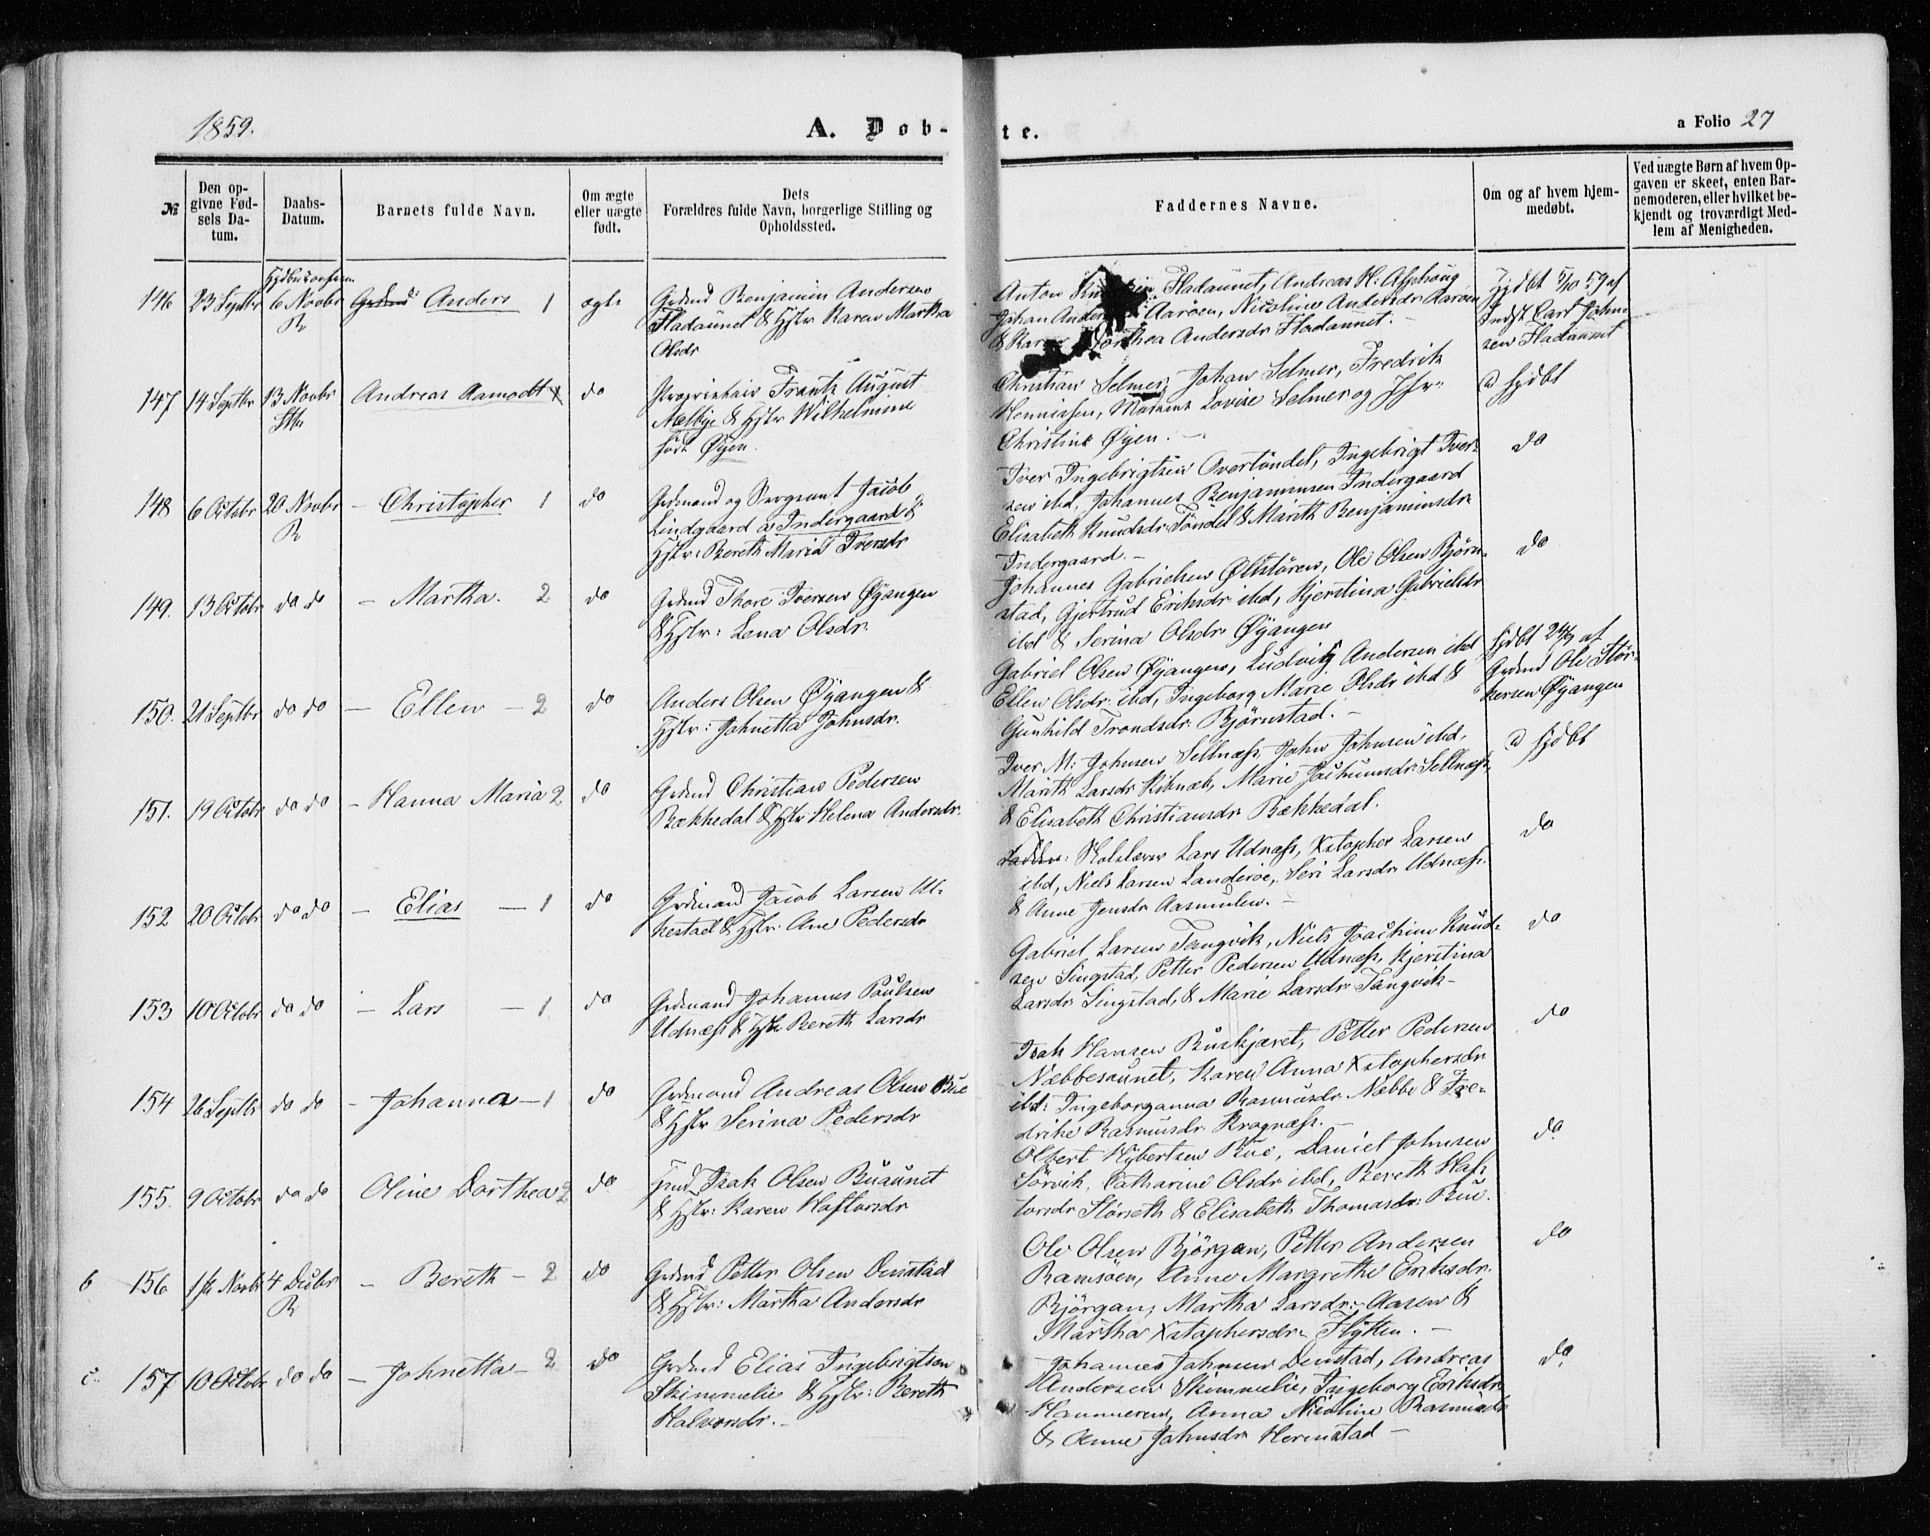 1859.
A. Døb-
te.
a Folio 27
№
Den op-
givne Fød-
sels Da-
tum.
Daabs-
Datum.
Barnets fulde Navn.
Om ægte
eller uægte
født.
Dets
Forældres fulde Navn, borgerlige Stilling og
Opholdssted.
Faddernes Navne.
Om og af hvem hjem-
medøbt.
Ved uægte Børn af hvem Op-
gaven er skeet, enten Bar-
nemoderen, eller hvilket be-
kjendt og troværdigt Med-
lem af Menigheden.
146 23 Septbr 6 Novbr
R
Anders 1
ægte
Grdmd Benjamin Andersen
Fladaunet & Hstr Karen Martha
Olsdr
Anton Fladaunet, Andreas H. Alphoug
Johan Aarøen, Nicoline Andersdr Aarøen
& Dorthea Andersdr Fladaunet.
Hjdbt 5/10 59 af
Indst Carl Johnsen
Fladaunet
147 14 Septbr 13 Novbr
Andreas Aamodt 1
do
Proprietair Frantz August
Melbye & Hstr Wilhelmine
født Øyen.
Christian Selmer, Johan Selmer, Fredrik
Hennissen, Madame Lovise Selmer og Jfr
Christine Øyen.
hjdbt
148 6 Octobr 20 Novbr
R
- Christopher 1
do
Grdmand og Sergeant Jacob
Lindgaard a Indergaard &
Hstr: Bereth Maria Iversdr
Iver Ingebrigtsen Overtøndel, Ingebrigt Iver-
sen ibd, Johannes Benjaminsen Indergaard
Elisabeth Knudsdr Tøndel & Marith Benjaminsdr
Indergaard. -
do
149. 13 Octobr do do
- Martha. 2
do
Grdmd Thore Iversen Øyangen
& Hstr: Lena Olsdr.
Johannes Gabrielsen Øltstøren, Ole Olsen Bjørn-
stad, Gjertrud Eriksdr ibd, Kjerstina Gabrielsdr
ibd & Serina Olsdr Øyangen
do
150. 21 Septbr do do
- Ellen - 2
do
Anders Olsen Øyangen &
Hstr: Johnetta Johnsdr.
Gabriel Olsen Øyangen, Ludvig Andersen ibd
Ellen Olsdr ibd, Ingeborg Marie Olsdr ibd &
Gunhild Trondsdr Bjørnstad. -
hjdbt 24/9 af
Grdmd Ole Stør-
kersen Øyangen
151. 19 Octobr do do
- Hanna Maria 2
do
Grdmd Christian Pedersen
Bækkedal & Hstr Helena Andersdr.
Iver M: Johnsen Sellnæss, John Johnsen ibd,
Marith Larsdr Kibnæb, Marie Joachumsdr Sellnæss
& Elisabeth Christiansdr Bækkedal.
hjdbt
152 20 Octobr do do
- Elias - 1
do
Grdmand Jacob Larsen Ul-
kestad & Hstr: Ane Pedersdr
Skolelærer Lars Udnæss, Xstopher Larsen
ibd, Niels Larsen Landerøe, Siri Larsdr Udnæss
& Anne Jensdr Aasmulen. -
do
153 10 Octobr do do
- Lars - 1
do
Grdmand Johannes Paulsen
Udnæss & Hstr Bereth Larsdr
Gabriel Larsen Tangvik, Niels Joachim Knud-
sen Singstad, Petter Pedersen Udnæss, Kjerstina
Larsdr Singstad, & Marie Larsdr Tangvik-
do
154 26 Septbr do do
- Johanna - 1
do
Grdmand Andreas Olsen Bue
& Hstr Serina Pedersdr
Isak Hansen Buskjæret, Petter Pedersen
Næbbesaunet, Karen Anna Xstophersdr
ibd: Ingeborganna Rasmusdr Næbbe & Fre-
drike Rasmusdr Kragnæss. -
do
155. 9 Octobr do do
Oline Dorthea 2
do
Isak Olsen Buaunet
& Hstr: Karen Haftorsdr
Olbert Hybertsen Bue, Daniel Johnsen
Sørvik, Catharine Olsdr ibd, Bereth Haf-
torsdr Størseth & Elisabeth Thomasdr: Bue.
do
b 156 1ste Novbr 4 Decbr
R
- Bereth - 2
do
Grdmd Petter Olsen Denstad
& Hstr: Martha Andersdr
Ole Olsen Bjørgan, Petter Andersen
Ramsøen, Anne Margrethe Eriksdr.
Bjørgan, Martha Larsdr Aasen &
Martha Xstophersdr Flytten. -
do
c 157 10 Octobr do do
- Johnetta - 2
do
Grdmd Elias Ingebrigtsen
Skimmelie & Hstr: Bereth
Halvorsdr. -
Johannes Johnsen Denstad, Andreas
Andersen Skimmelie, Ingeborg Eriksdr
Hammeren, Anna Nicoline Rasmusdr
& Anne Johnsdr Hermstad -
do.